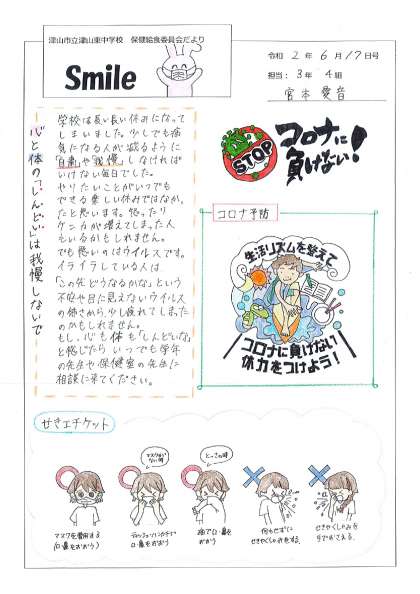 津山市立津山東中学校　保健給食委員会だより
Smile
令和 2年 6月17日号
担当：3年 4組
宮本 愛音
心と体の「しんどい」は我慢しないで
学校は長い長い休みになって
しまいました。少しでも病
気になる人が減るように
「自粛」や「我慢」しなければ
いけない毎日でした。
やりたいことがいつでも
できる楽しい休みではなか
たと思います。怒ったり
ケンカが増えてしまった人
もいるかもしれません。
でも悪いのはウイルスです。
イライラしている人は、
「この先どうなるかな」という
不安や目に見えないウイルス
の怖さから、少し疲れてしまった
のかもしれません。
もし、心も体も「しんどいな」
と感じたら いつでも学年
の先生や保健室の先生に
相談に来てください。
STOP
コロナに
負けない！
コロナ予防
生活リズムを整えて
コロナに負けない
体力をつけよう！
せきエチケット
マスクがない時
とっさの時
マスクを着用する
(口・鼻をおおう)
ティッシュ・ハンカチで
口・鼻をおおう
袖で口・鼻を
おおう
何もせずに
せきやくしゃみをする。
せきやくしゃみを
手でおさえる。